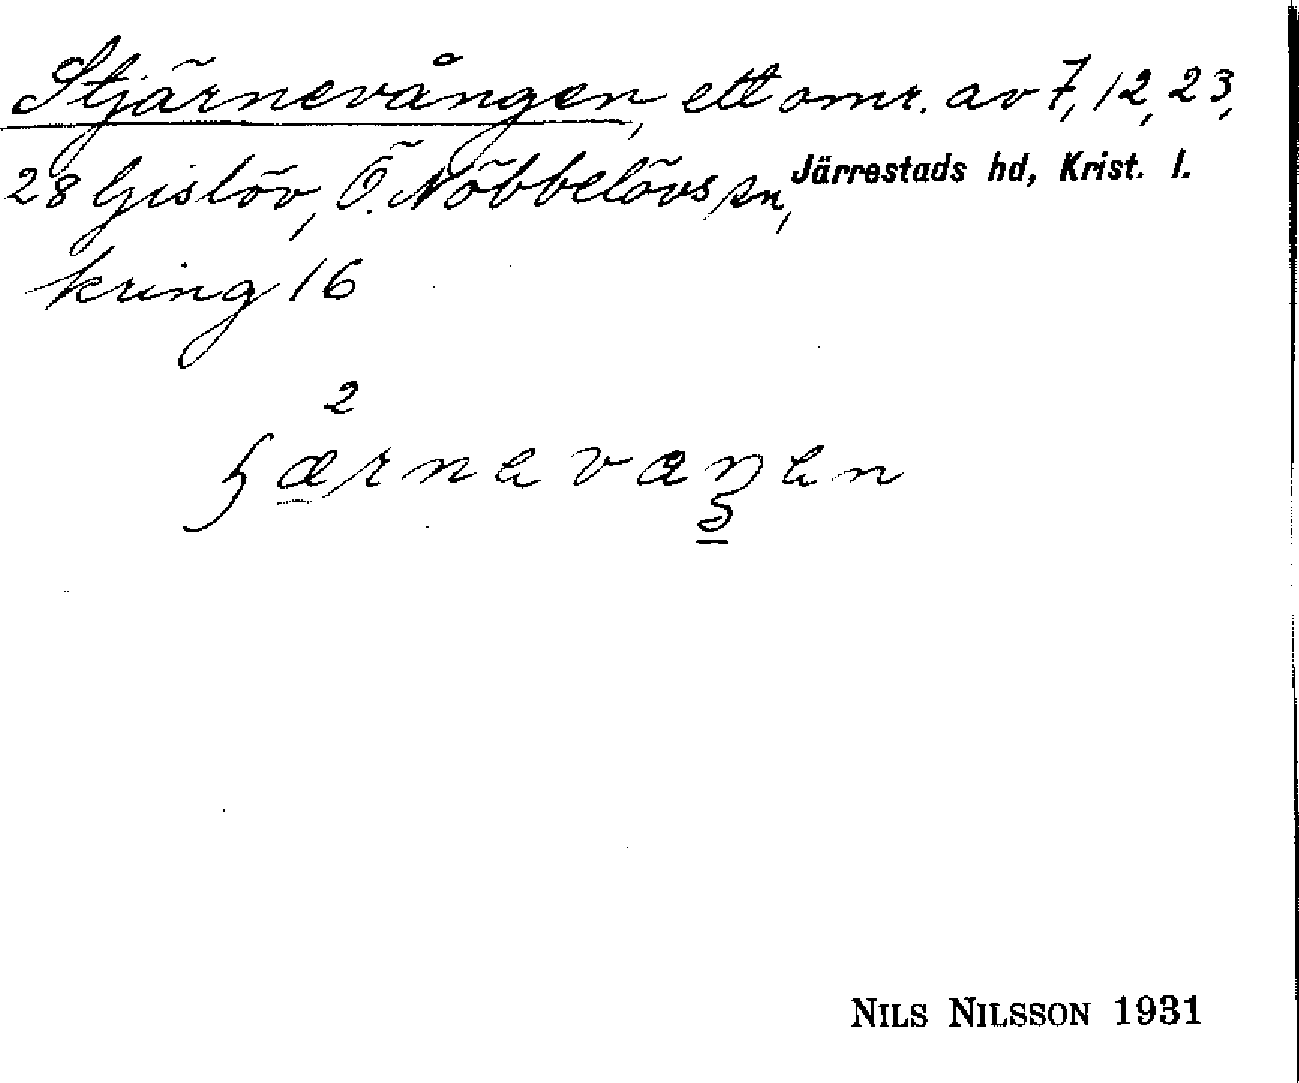 Stjärnevången, ett omr. av 7, 12, 23,
28 Gislöv, Ö. Nöbbelövs sn, Järrestads hd, Krist. l.
kring 16
2
NILS NILSSON 1931